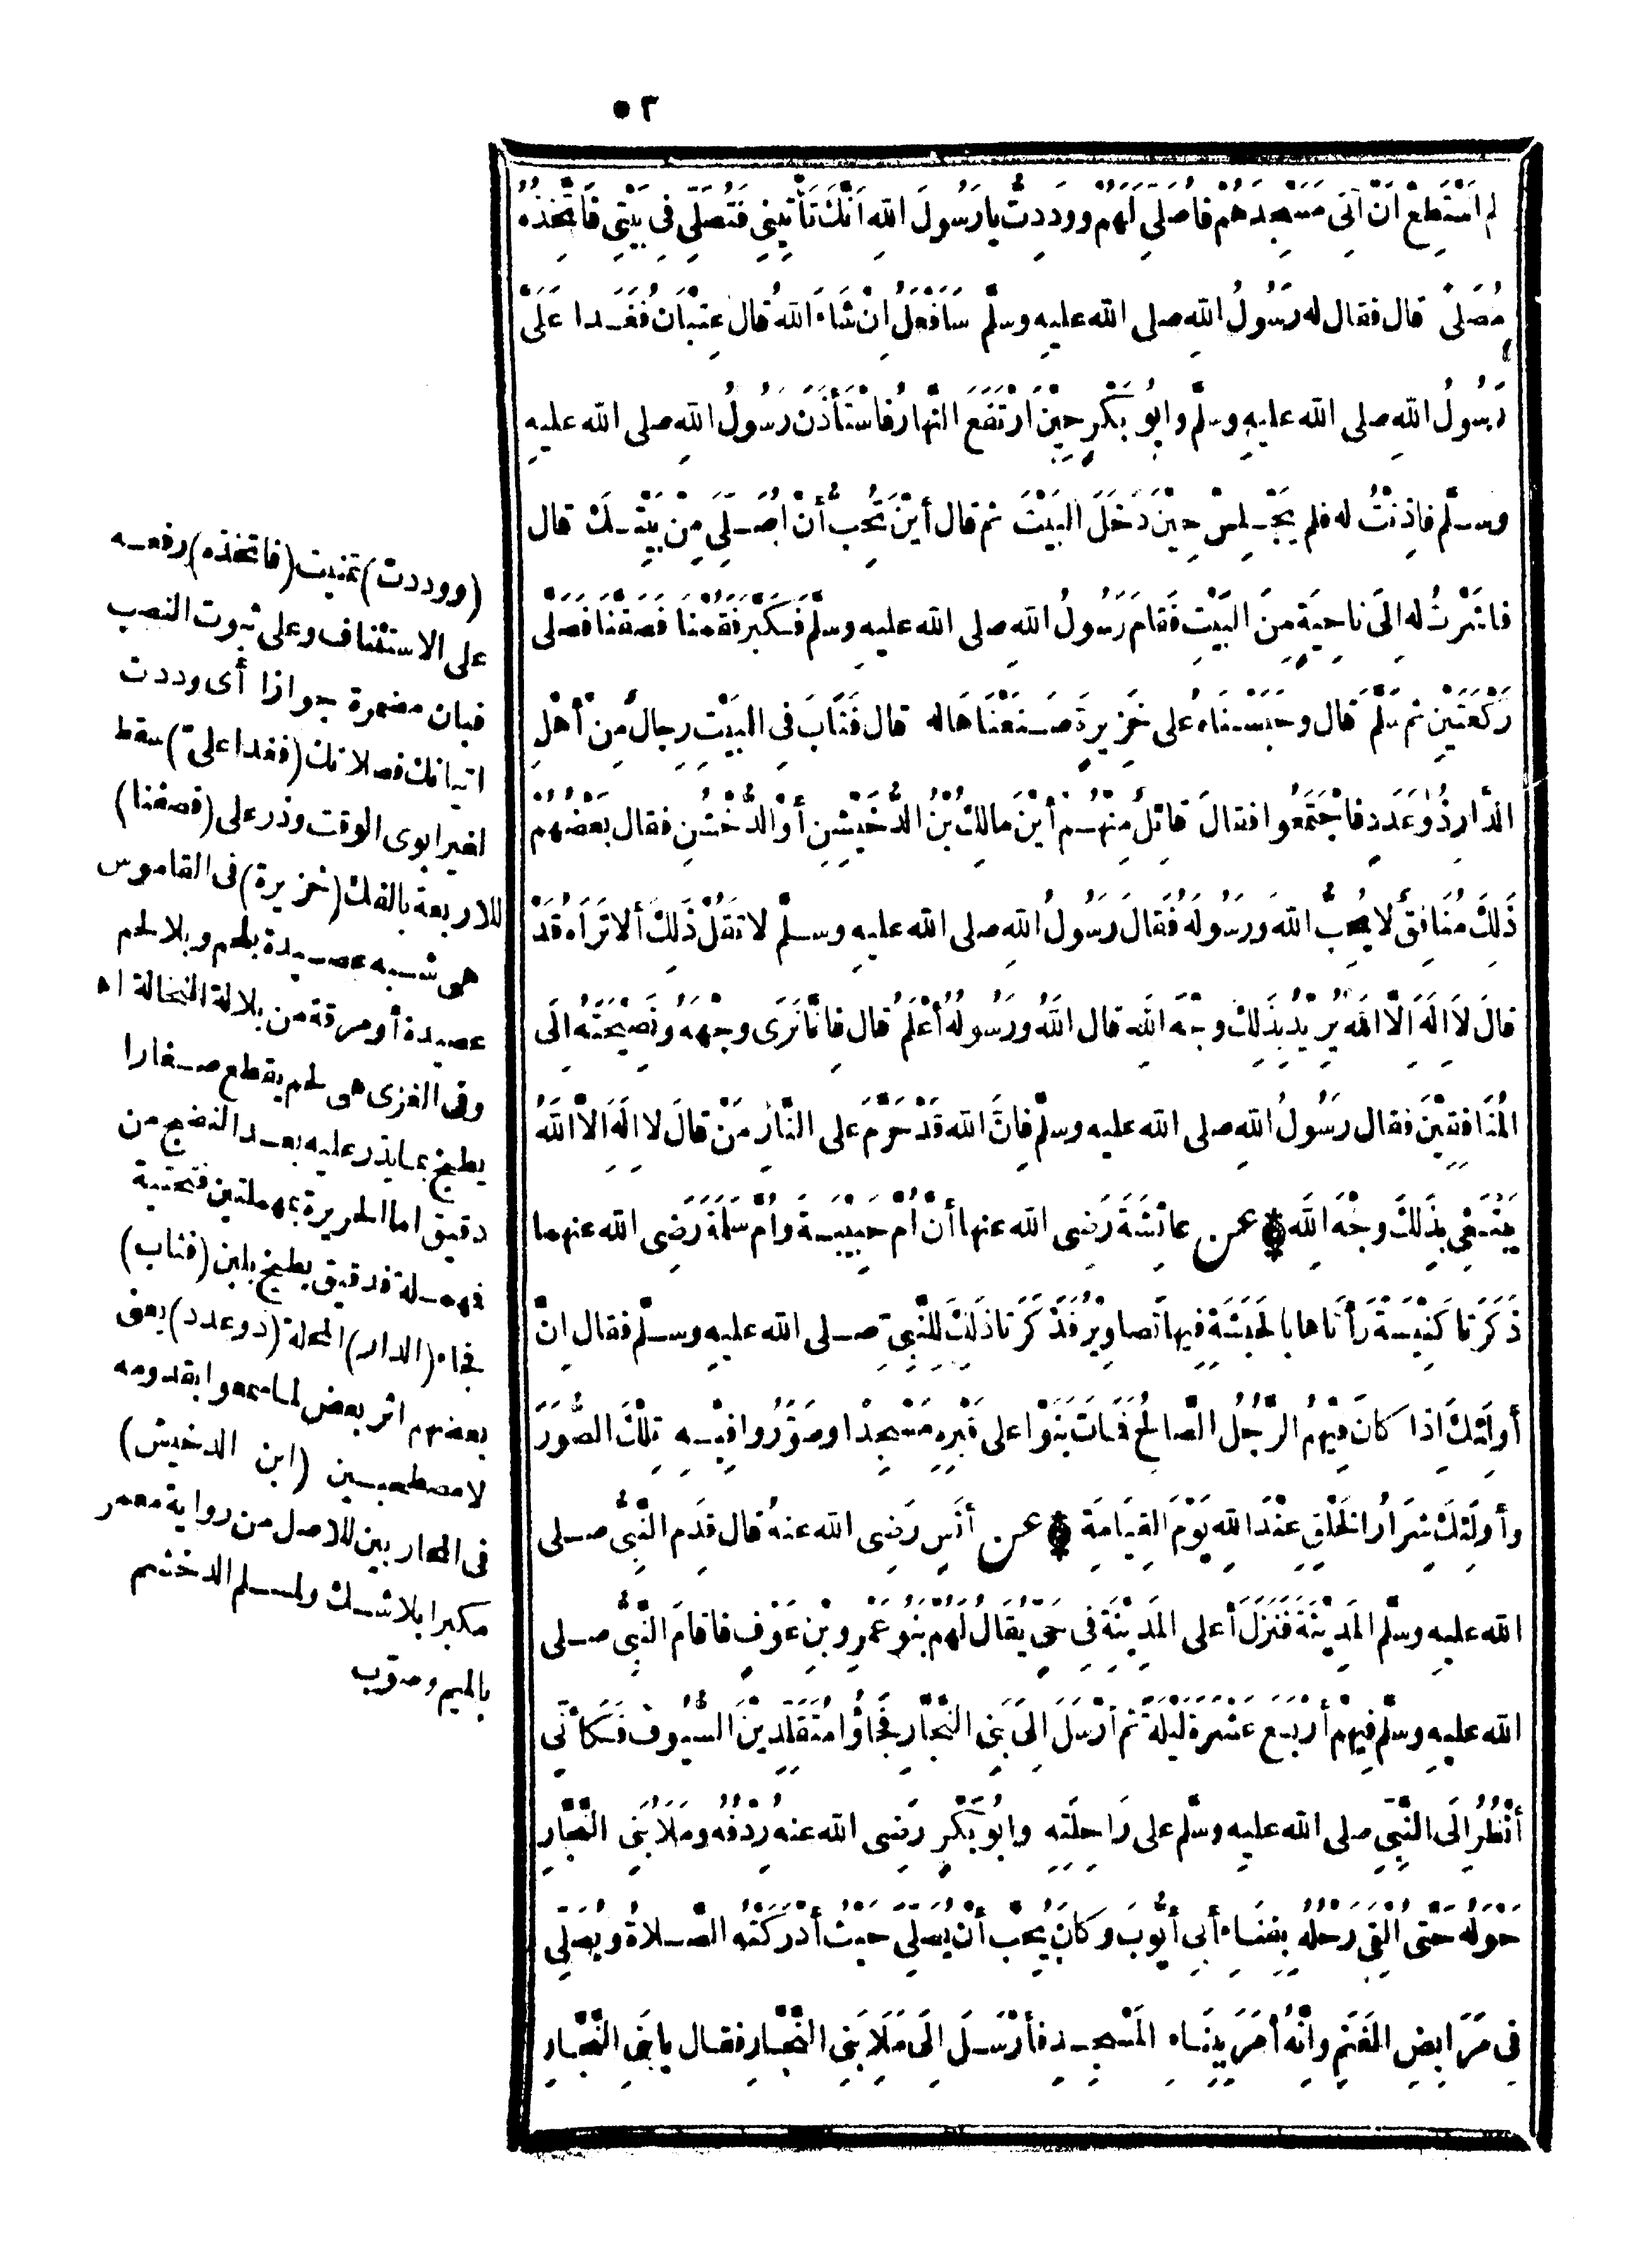 ٥٣
لم اَسْتَطِعْ اَنْ آتِىَ مَسْجِدَهُمْ فَاصلى لَهُمْ ووددتُّ يا رَسُولَ اللهِ اَنَّكَ تَأْتِيْنِى فَتُصَلِّى فِى بَيْتِى فَاَتَّخِذُهُ
مُصَلًّى قال فقال له رَسُولُ اللهِ صلى الله عليهِ وسلَّم سَاَفْعَلُ اِنْ شَاءَ اللهُ قال عِتْبَانُ فَغَدا عَلَىَّ
رَسُولُ اللهِ صلى الله عليهِ وسلَّم وابُو بَكْرٍ حِيْنَ ارْتَفَعَ النَّهارُ فَاسْتَأْذَنَ رَسُولُ اللهِ صلى الله عليهِ
وسلَّم فاذِنْتُ له فلم يَجْلِسْ حِيْنَ دَخَلَ البَيْتَ ثم قال أيْنَ تُحِبُّ أنْ اُصَلِّىَ مِنْ بَيْتِكَ قال
فاشَرْتُ له اِلَى ناحِيَةٍ مِنَ البَيْتِ فَقامَ رَسُولُ اللهِ صلى الله عليهِ وسلَّم فَكَبَّرَ فَقُمْنَا فَصَفَّنَا فَصَلَّى
رَكْعَتَيْنِ ثم سَلَّمَ قال وحَبَسْنَاهُ على خَزِيرَةٍ صَنَعْنَاهَا له قال فَثَابَ فِى البَيْتِ رِجالٌ مِنْ أهْلِ
الدَّارِ ذُوُ عَدَدٍ فاجْتَمَعُوا فقالَ قائِلٌ مِنْهُمْ أيْنَ مالِكُ بْنُ الدُّخَيْشِنِ أوْ الدُّخْشُنِ فقال بَعْضُهُمْ
ذَلِكَ مُنَافِقٌ لا يُحِبُّ اللهَ وَرسُولَهُ فَقالَ رَسُولُ اللهِ صلى الله عليهِ وسلَّم لا تَقُلْ ذَلِكَ ألا تَرَاهُ قَدْ
قالَ لَا اِلَهَ اِلَّا اللهُ يُرِيْدُ بِذَلِكَ وجْهَ اللهِ قال اللهُ ورَسُولُهُ أعْلَمُ قال فاِنَّا نَرَى وجْهَهُ ونَصِيْحَتَهُ اِلَى
المُنَافِقِيْنَ فقال رَسُولُ اللهِ صلى الله عليه وسلَّم فاِنَّ الله قَدْ حَرَّمَ على النَّارِ مَنْ قالَ لا اِلَهَ اِلَّا اللهُ
يَبْتَغِى بِذَلِكَ وجْهَ اللهِ عن عائِشَةَ رَضِى الله عنها أنَّ اُمَّ حَبِيْبَةَ واُمَّ سَلَمَةَ رَضِى الله عنهما
ذَكَرَتا كَنِيْسَةً رَأتَاها بالحَبَشَةِ فِيها تَصاوِيْرُ فَذَكَرَتا ذَلِكَ لِلنَّبِىِّ صلى الله عليهِ وسلَّم فقال اِنَّ
أولَئِكَ اِذا كانَ فِيْهِمُ الرَّجُلُ الصَّالِحُ فَمَاتَ بَنَوْا على قَبْرِهِ مَسْجِدًا وصَوَّرُوا فِيْهِ تِلْكَ الصُّوَرَ
وأولَئِكَ شِرَارُ الخَلْقِ عِنْدَ اللهِ يَوْمَ القِيَامَةِ عن أنَسٍ رَضِى الله عنهُ قال قَدِمَ النَّبِىُّ صلى
الله عليهِ وسلَّم المَدِيْنَةَ فَنَزَلَ أعلى المَدِيْنَةِ فِى حَىٍّ يُقَالُ لَهُمْ بَنُو عَمْرِو بْنِ عَوْفٍ فاقامَ النَّبِىُّ صلى
الله عليهِ وسلَّم فِيْهِمْ أرْبَعَ عَشْرَةَ لَيْلَةً ثم أرْسَلَ اِلَى بَنِى النَّجَّارِ فَجَاؤُا مُتَقَلِّدِيْنَ السُّيُوفَ فَكَأنِّى
أنْظُرُ اِلَى النَّبِىِّ صلى الله عليهِ وسلَّم على رَاحِلَتِهِ وابُو بَكْرٍ رَضِى الله عنه رِدْفُهُ ومَلَاُ بَنِى النَّجَّارِ
حَوْلَهُ حَتَّى اَلْقَى رَحْلَهُ بِفِنَاءِ أبى أيُّوبَ وَكانَ يُحِبُّ أنْ يُصَلِّىَ حَيْثُ أدْرَكَتْهُ الصَّلاةُ ويُصَلِّى
فِى مَرَابِضِ الغَنَمِ وانَّهُ أمَرَ بِبِنَاءِ المَسْجِدِ فأرْسَلَ اِلَى مَلَاِ بَنِى النَّجَّارِ فقال يابَنِى النَّجَّارِ
(ووددت) تمنيت (فاتخذه) رفعه
على الاستئناف وعلى ثبوت النصب
فبان مضمرة جوازا أى وددت
اتيانك فصلاتك (فغدا على) سقط
لغير ابوى الوقت وذر على (فصفنا)
للاربعة بالفك (خزيرة) فى القاموس
هى شبه عصيدة بلحم وبلا لحم
عصيدة أو مرقة من بلالة النخالة اه
وفى الغزى هى لحم يقطع صغارا
يطبخ بماء يذر عليه بعد النضج من
دقيق اما الحريرة بمهملتين فتحتية
فهملة فدقيق يطبخ بلبن (فثاب)
فجاء (الدار) المحلة (ذو عدد) يعنى
بعضهم اثر بعض لما سمعوا بقدومه
لا مصطحبين (ابن الدخيش)
فى المحاربين للاصل من رواية معمر
مكبرا بلا شك ولمسلم الدخشم
بالميم وصوب